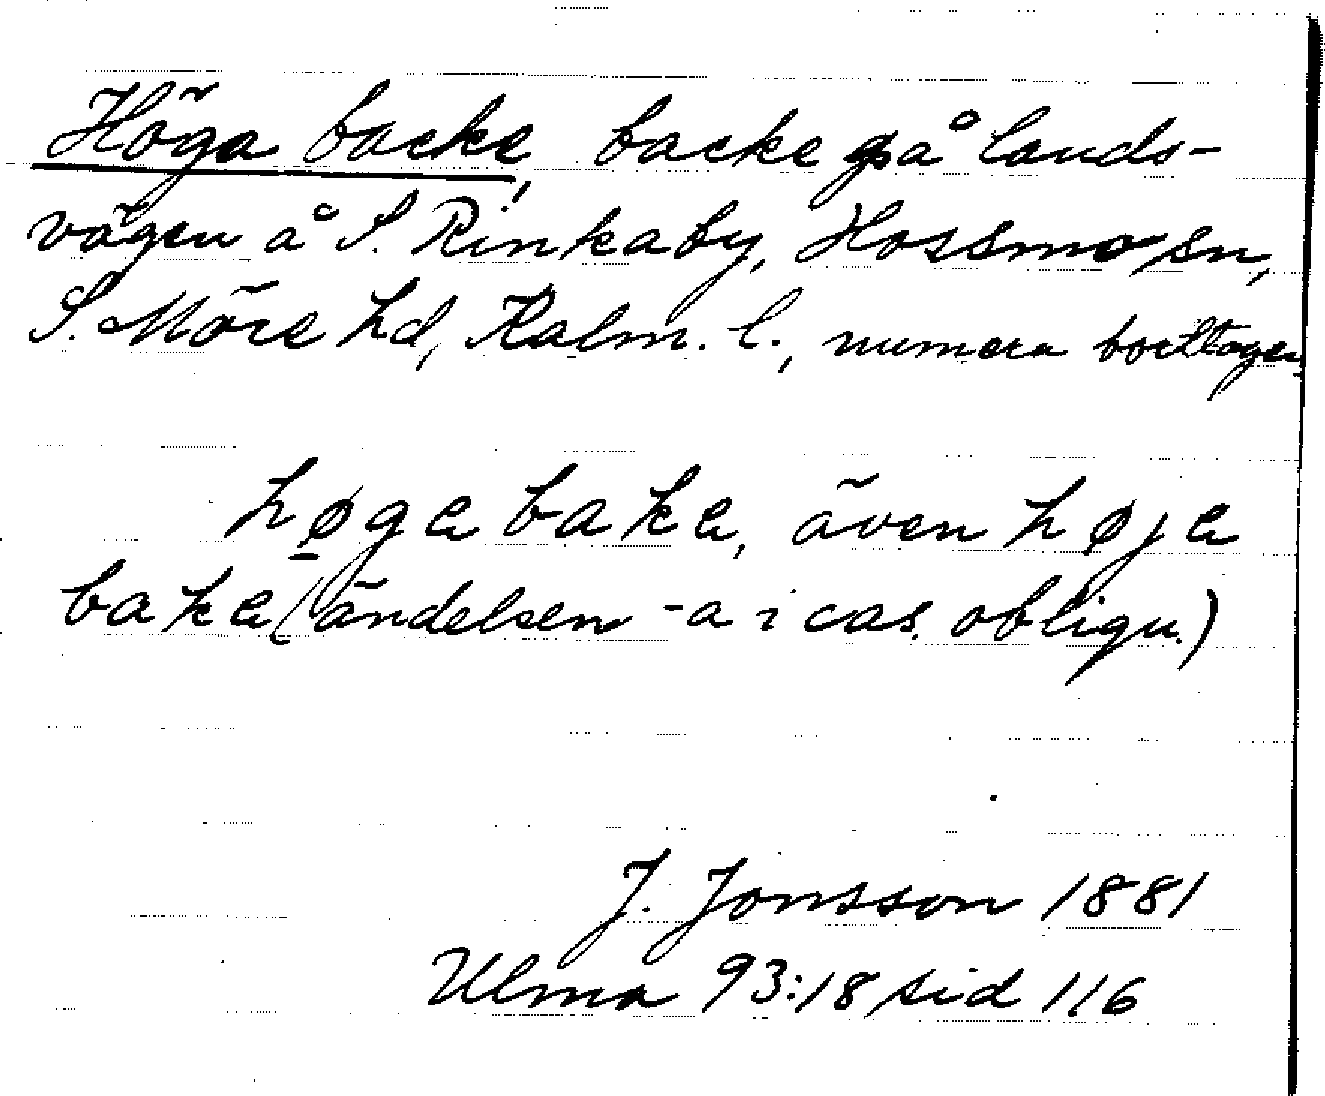 Höga backe, backe på lands-
vägen å S. Rinkaby, Hossmo sn,
S. Möre hd, Kalm. l., numera borttagen
høga baka, även høja
baka (ändelsen -a i cas. obliqu.)
J. Jonsson 1881
Ulma 93:18 sid 116